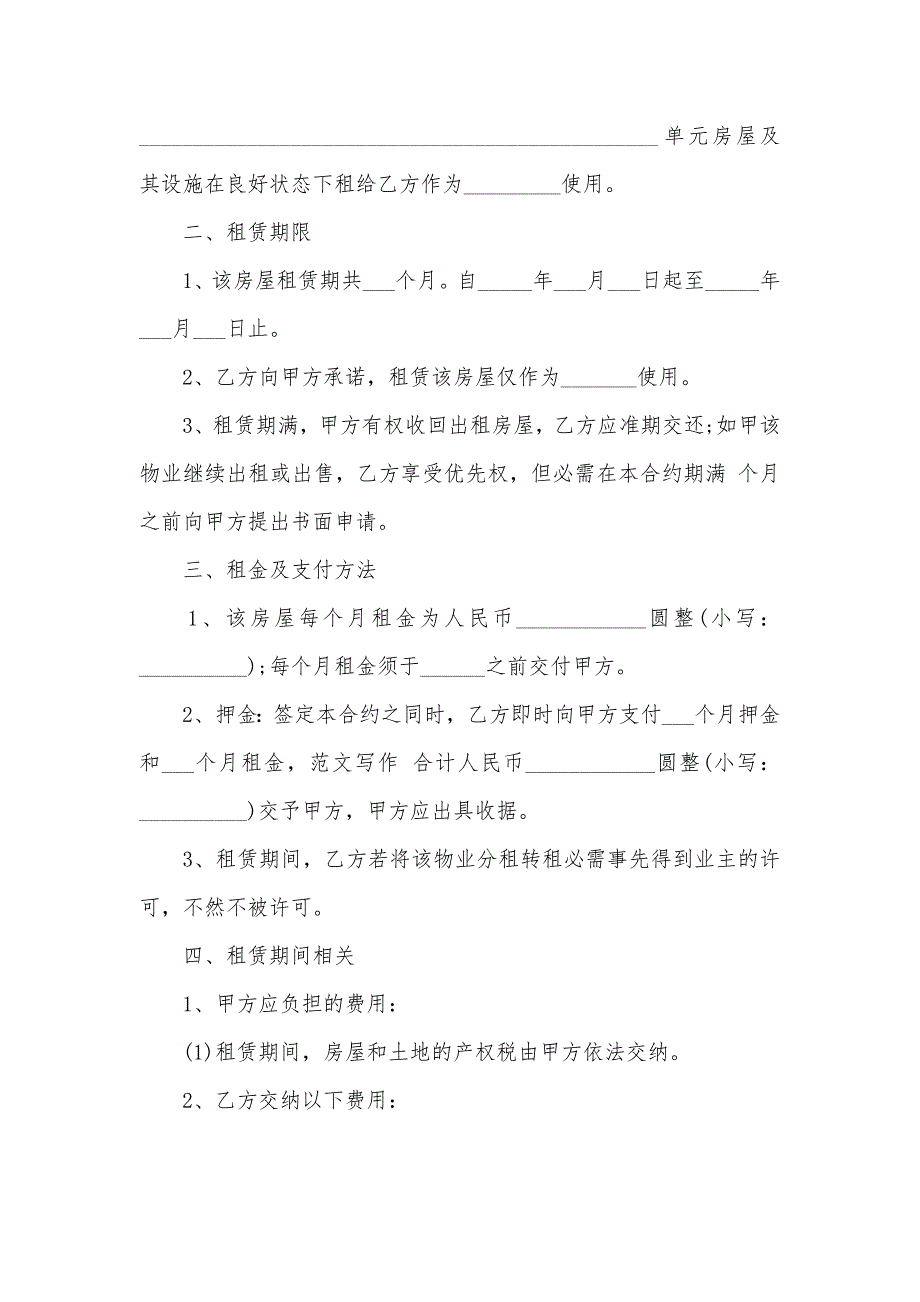 ________________________________________________单元房屋及
其设施在良好状态下租给乙方作为_________使用。
二、租赁期限
1、该房屋租赁期共___个月。自_____年___月___日起至_____年
___月___日止。
2、乙方向甲方承诺，租赁该房屋仅作为_______使用。
3、租赁期满，甲方有权收回出租房屋，乙方应准期交还;如甲该
物业继续出租或出售，乙方享受优先权，但必需在本合约期满 个月
之前向甲方提出书面申请。
三、租金及支付方法
1、该房屋每个月租金为人民币____________圆整(小写：
__________);每个月租金须于______之前交付甲方。
2、押金：签定本合约之同时，乙方即时向甲方支付___个月押金
和___个月租金，范文写作 合计人民币____________圆整(小写：
__________)交予甲方，甲方应出具收据。
3、租赁期间，乙方若将该物业分租转租必需事先得到业主的许
可，不然不被许可。
四、租赁期间相关
1、甲方应负担的费用：
(1)租赁期间，房屋和土地的产权税由甲方依法交纳。
2、乙方交纳以下费用：